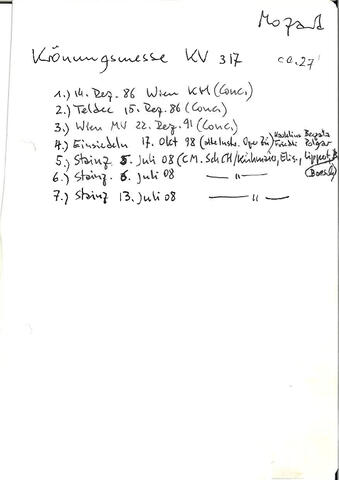 Mozart
Krönungsmesse KV 317 ca. 27'
1.) 14. Dez. 86 Wien KH (Conc.)
2.) Teldec 15. Dez. 86 (Conc.)
3.) Wien MV 22. Dez. 91 (Conc.)
4.) Einsiedeln 17. Okt 98 (alte Instr. Oper Zü)
5.) Stainz 5. Juli 08 (CM. Sch CH/ Elis.,
6.) Stainz. 6. Juli 08 —— " ——
7.) Stainz 13. Juli 08 —— " ——